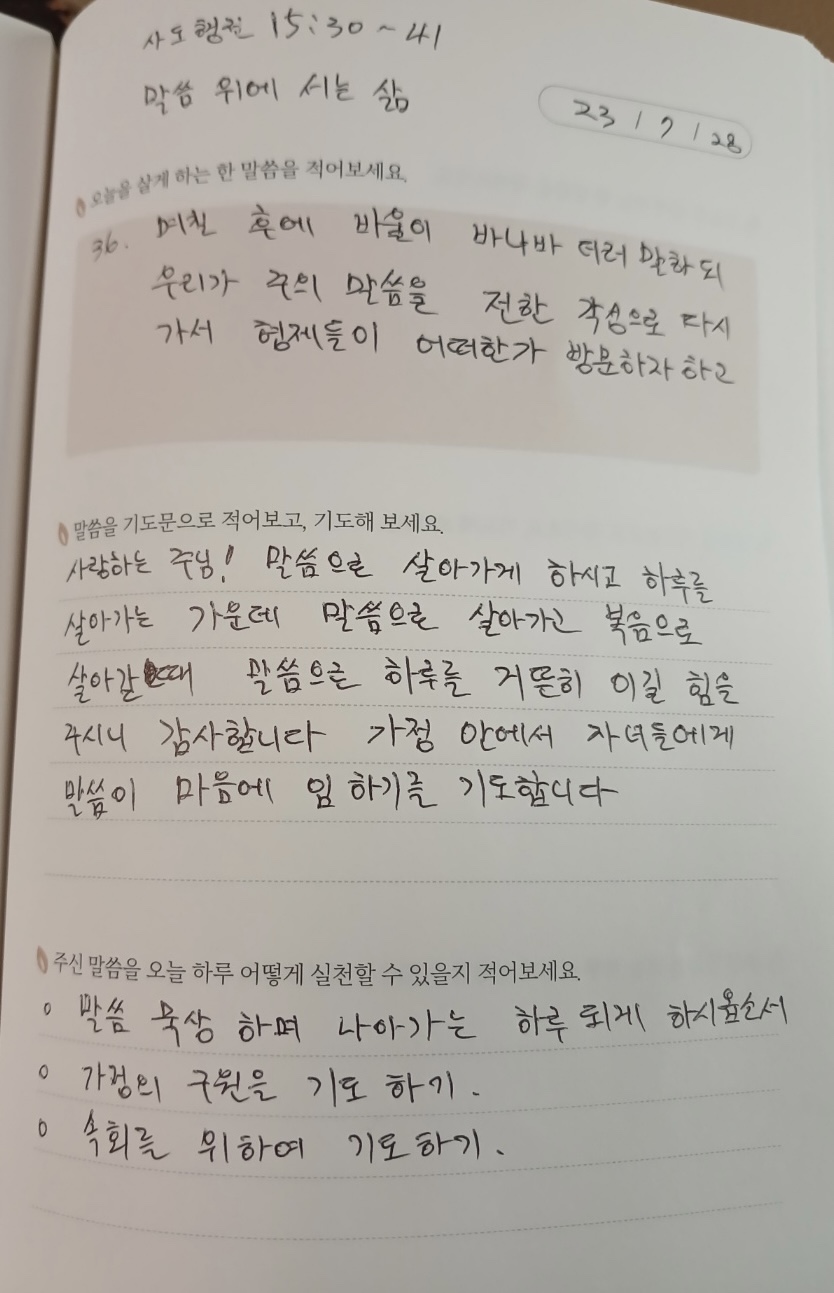 사도행전 15:30~41
말씀 위에 서는 삶
23 / 7 / 28
오늘을 살게 하는 한 말씀을 적어보세요.
36. 며칠 후에 바울이 바나바 더러 말하되
우리가 주의 말씀을 전한 각성으로 다시
가서 형제들이 어떠한가 방문하자 하고
말씀을 기도문으로 적어보고, 기도해 보세요.
사랑하는 주님! 말씀으로 살아가게 하시고 하루를
살아가는 가운데 말씀으로 살아가고 복음으로
살아갈 때 말씀으로 하루를 거뜬히 이길 힘을
주시니 감사합니다 가정 안에서 자녀들에게
말씀이 마음에 임 하기를 기도합니다
주신 말씀을 오늘 하루 어떻게 실천할 수 있을지 적어보세요.
o 말씀 묵상 하며 나아가는 하루 되게 하시옵소서
o 가정의 구원을 기도 하기.
o 속회를 위하여 기도하기.